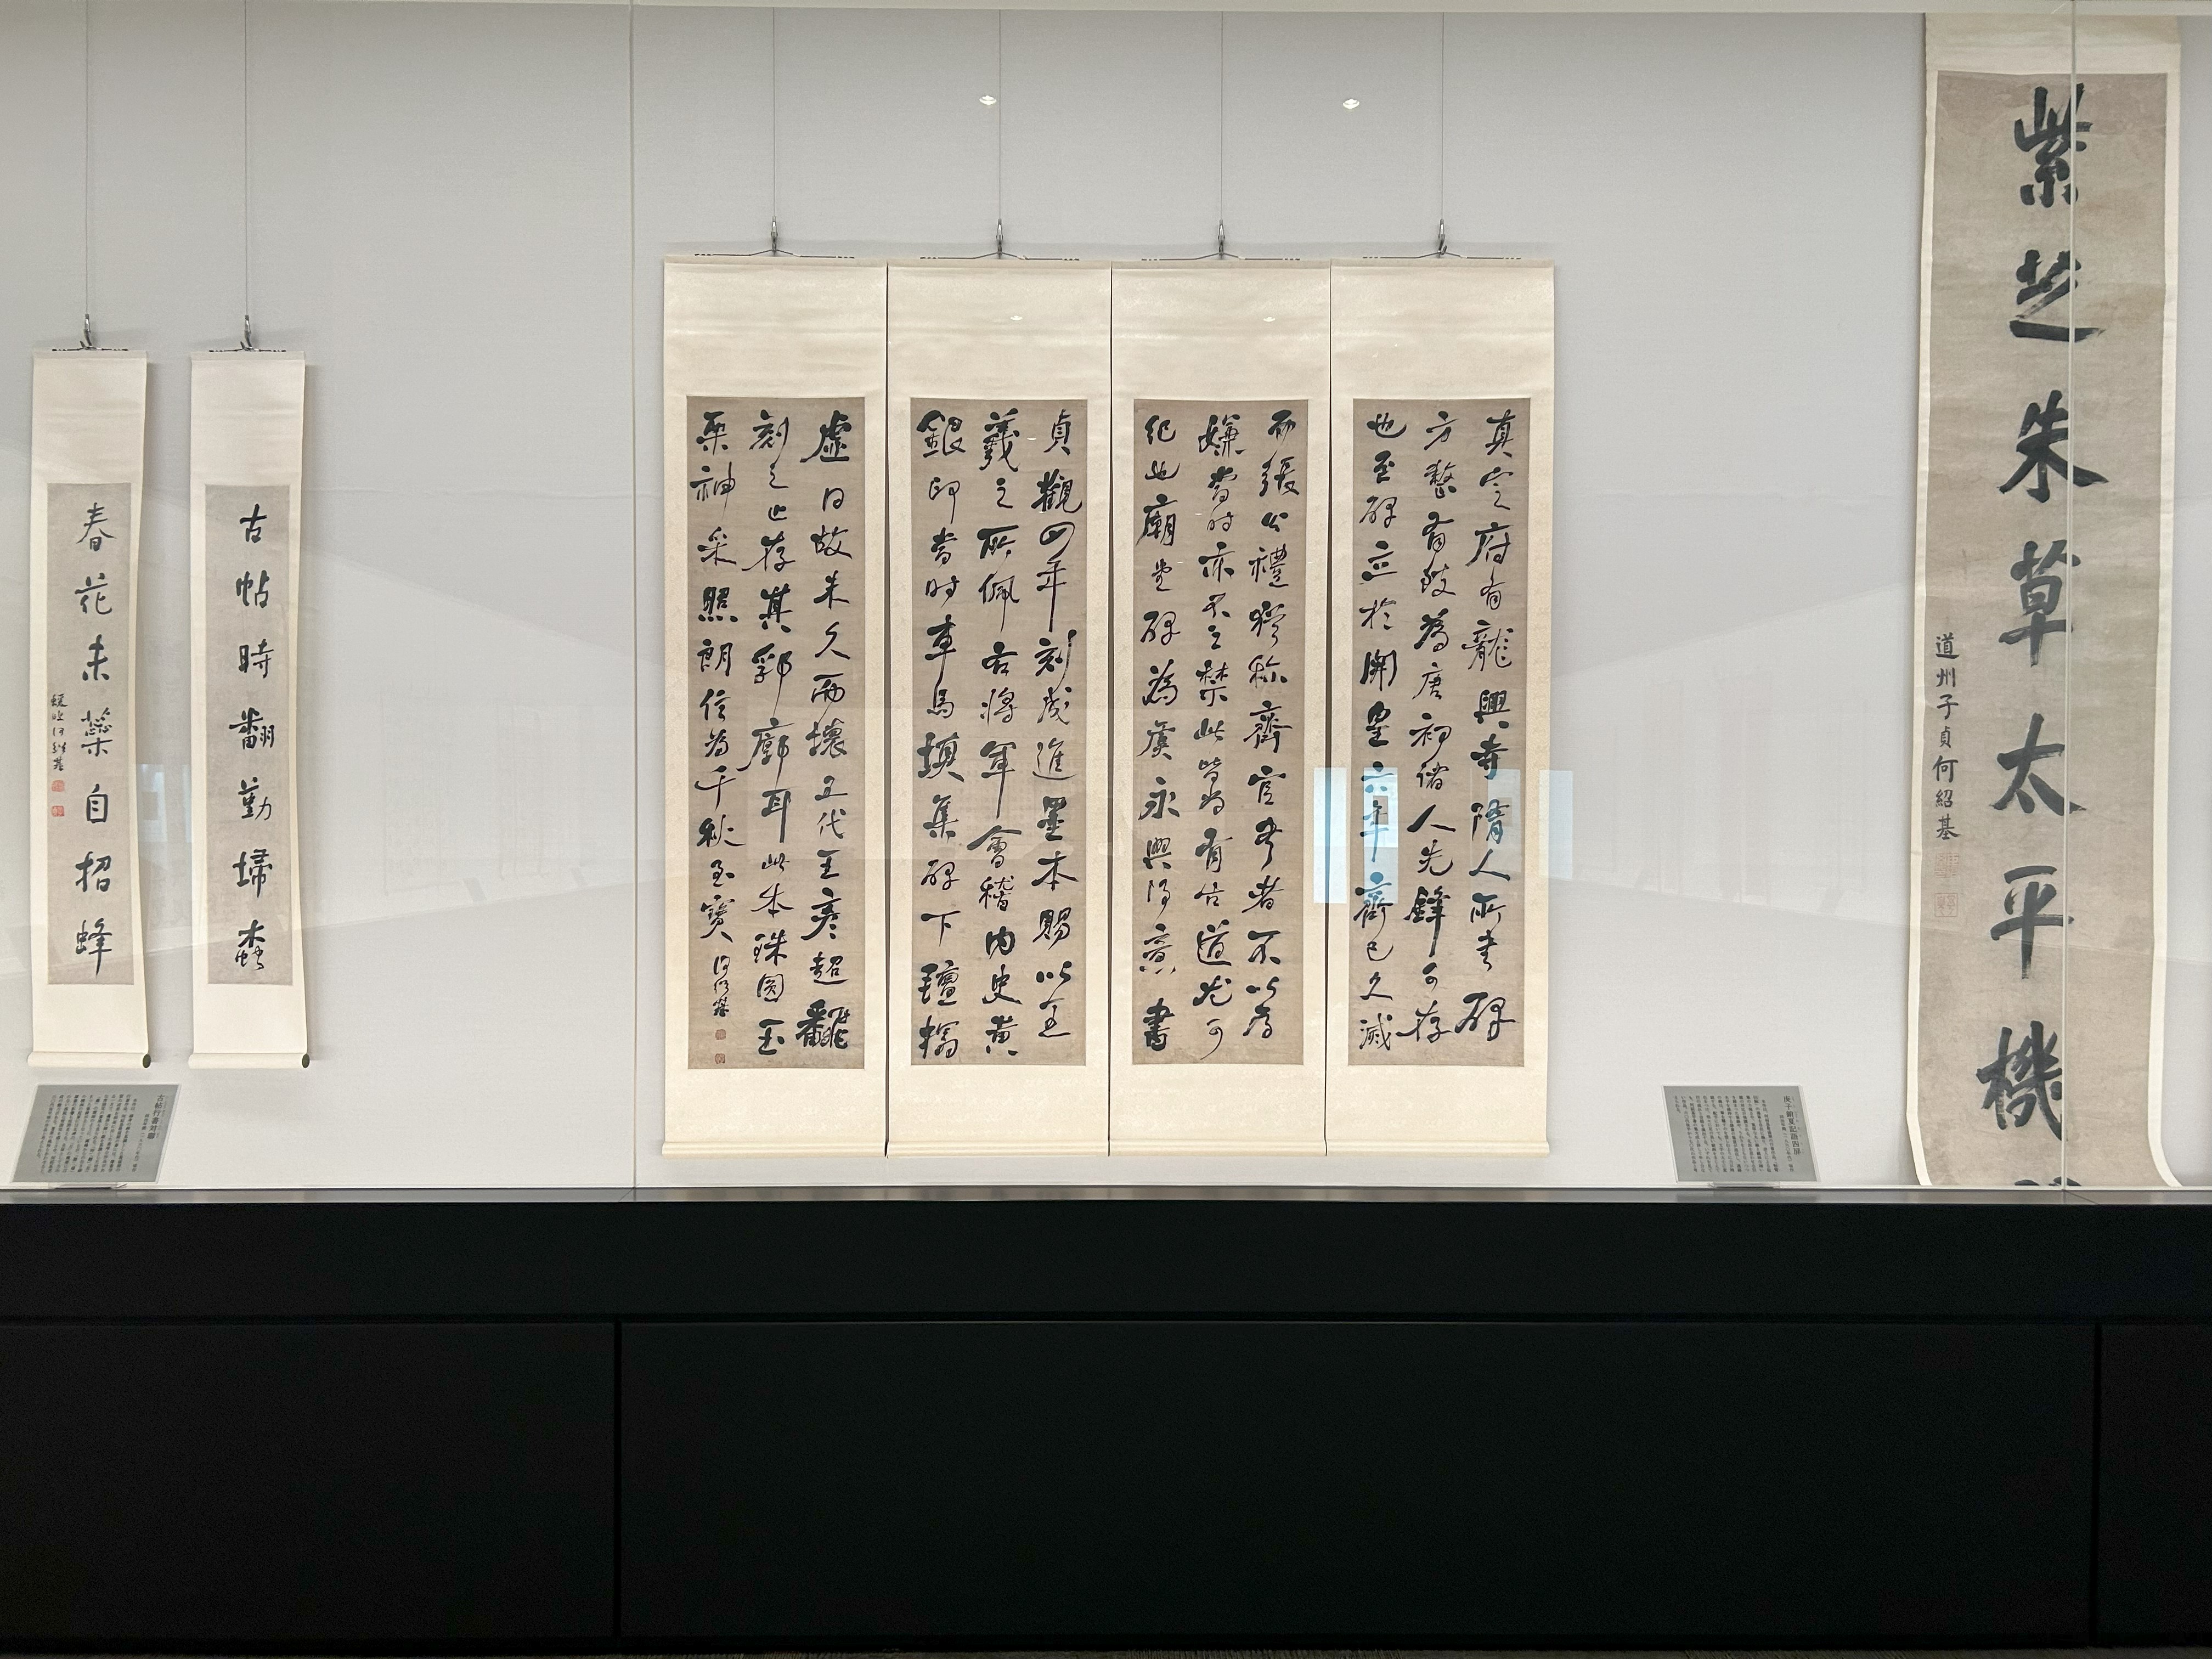 紫芝朱草太平機
道州子貞何紹基
真定府有龍興寺隋人所書碑
方整有致為唐初諸人先鋒可存
也至碑立於開皇六年齊已久滅
而張公禮猶称齊官書者不以為
嫌當时亦不之禁此皆為有古道尤可
紀也廟堂碑為虞永興得意書
貞觀四年刻成進墨本賜以王
羲之所佩右將軍會稽內史黃
銀印當时車馬填集碑下氈搨
虛日故未久而壞五代王彥超飜
刻之止存其郛廓耳此本珠圓玉
栗神采照朗信為千秋至寶 何紹基
古帖時翻勤埽蠹
春花未蘂自招蜂
蝯叟何紹基